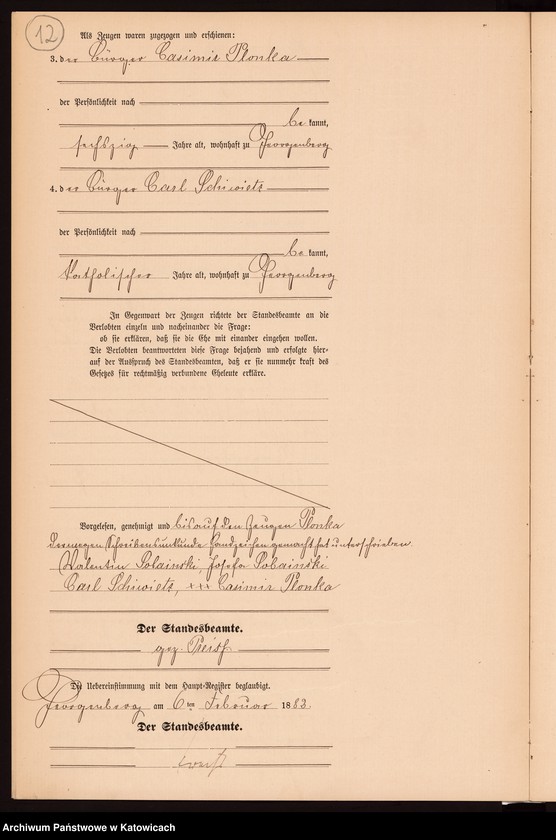 12
Als Zeugen waren zugezogen und erschienen:
3. der Bürger Casimir Plonka
der Persönlichkeit nach
be kannt,
sechszig Jahre alt, wohnhaft zu Georgenberg
4. der Bürger Carl Schiwietz
der Persönlichkeit nach
be kannt,
katholischer Jahre alt, wohnhaft zu Georgenberg
In Gegenwart der Zeugen richtete der Standesbeamte an die
Verlobten einzeln und nacheinander die Frage:
ob sie erklären, daß sie die Ehe mit einander eingehen wollen.
Die Verlobten beantworteten diese Frage bejahend und erfolgte hier-
auf der Ausspruch des Standesbeamten, daß er sie nunmehr kraft des
Gesetzes für rechtmäßig verbundene Eheleute erkläre.
Vorgelesen, genehmigt und bis auf den Zeugen Plonka
deswegen Schreibensunkunde Handzeichen gemacht hat unterschrieben.
Valentin Sobainski, Josefa Sobainski
Carl Schiwietz, +++ Casimir Plonka
Der Standesbeamte.
gez.
Die Uebereinstimmung mit dem Haupt-Register beglaubigt.
Georgenberg am 6ten Februar 1883.
Der Standesbeamte.
Archiwum Państwowe w Katowicach